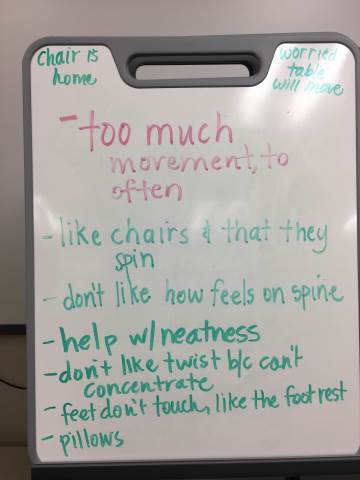 Chair is
home
worried
table
will move
- too much
movement, to
often
- like chairs & that they
spin
- don't like how feels on spine
- help w/neatness
- don't like twist b/c can't
concentrate
- feet don't touch, like the foot rest
- pillows